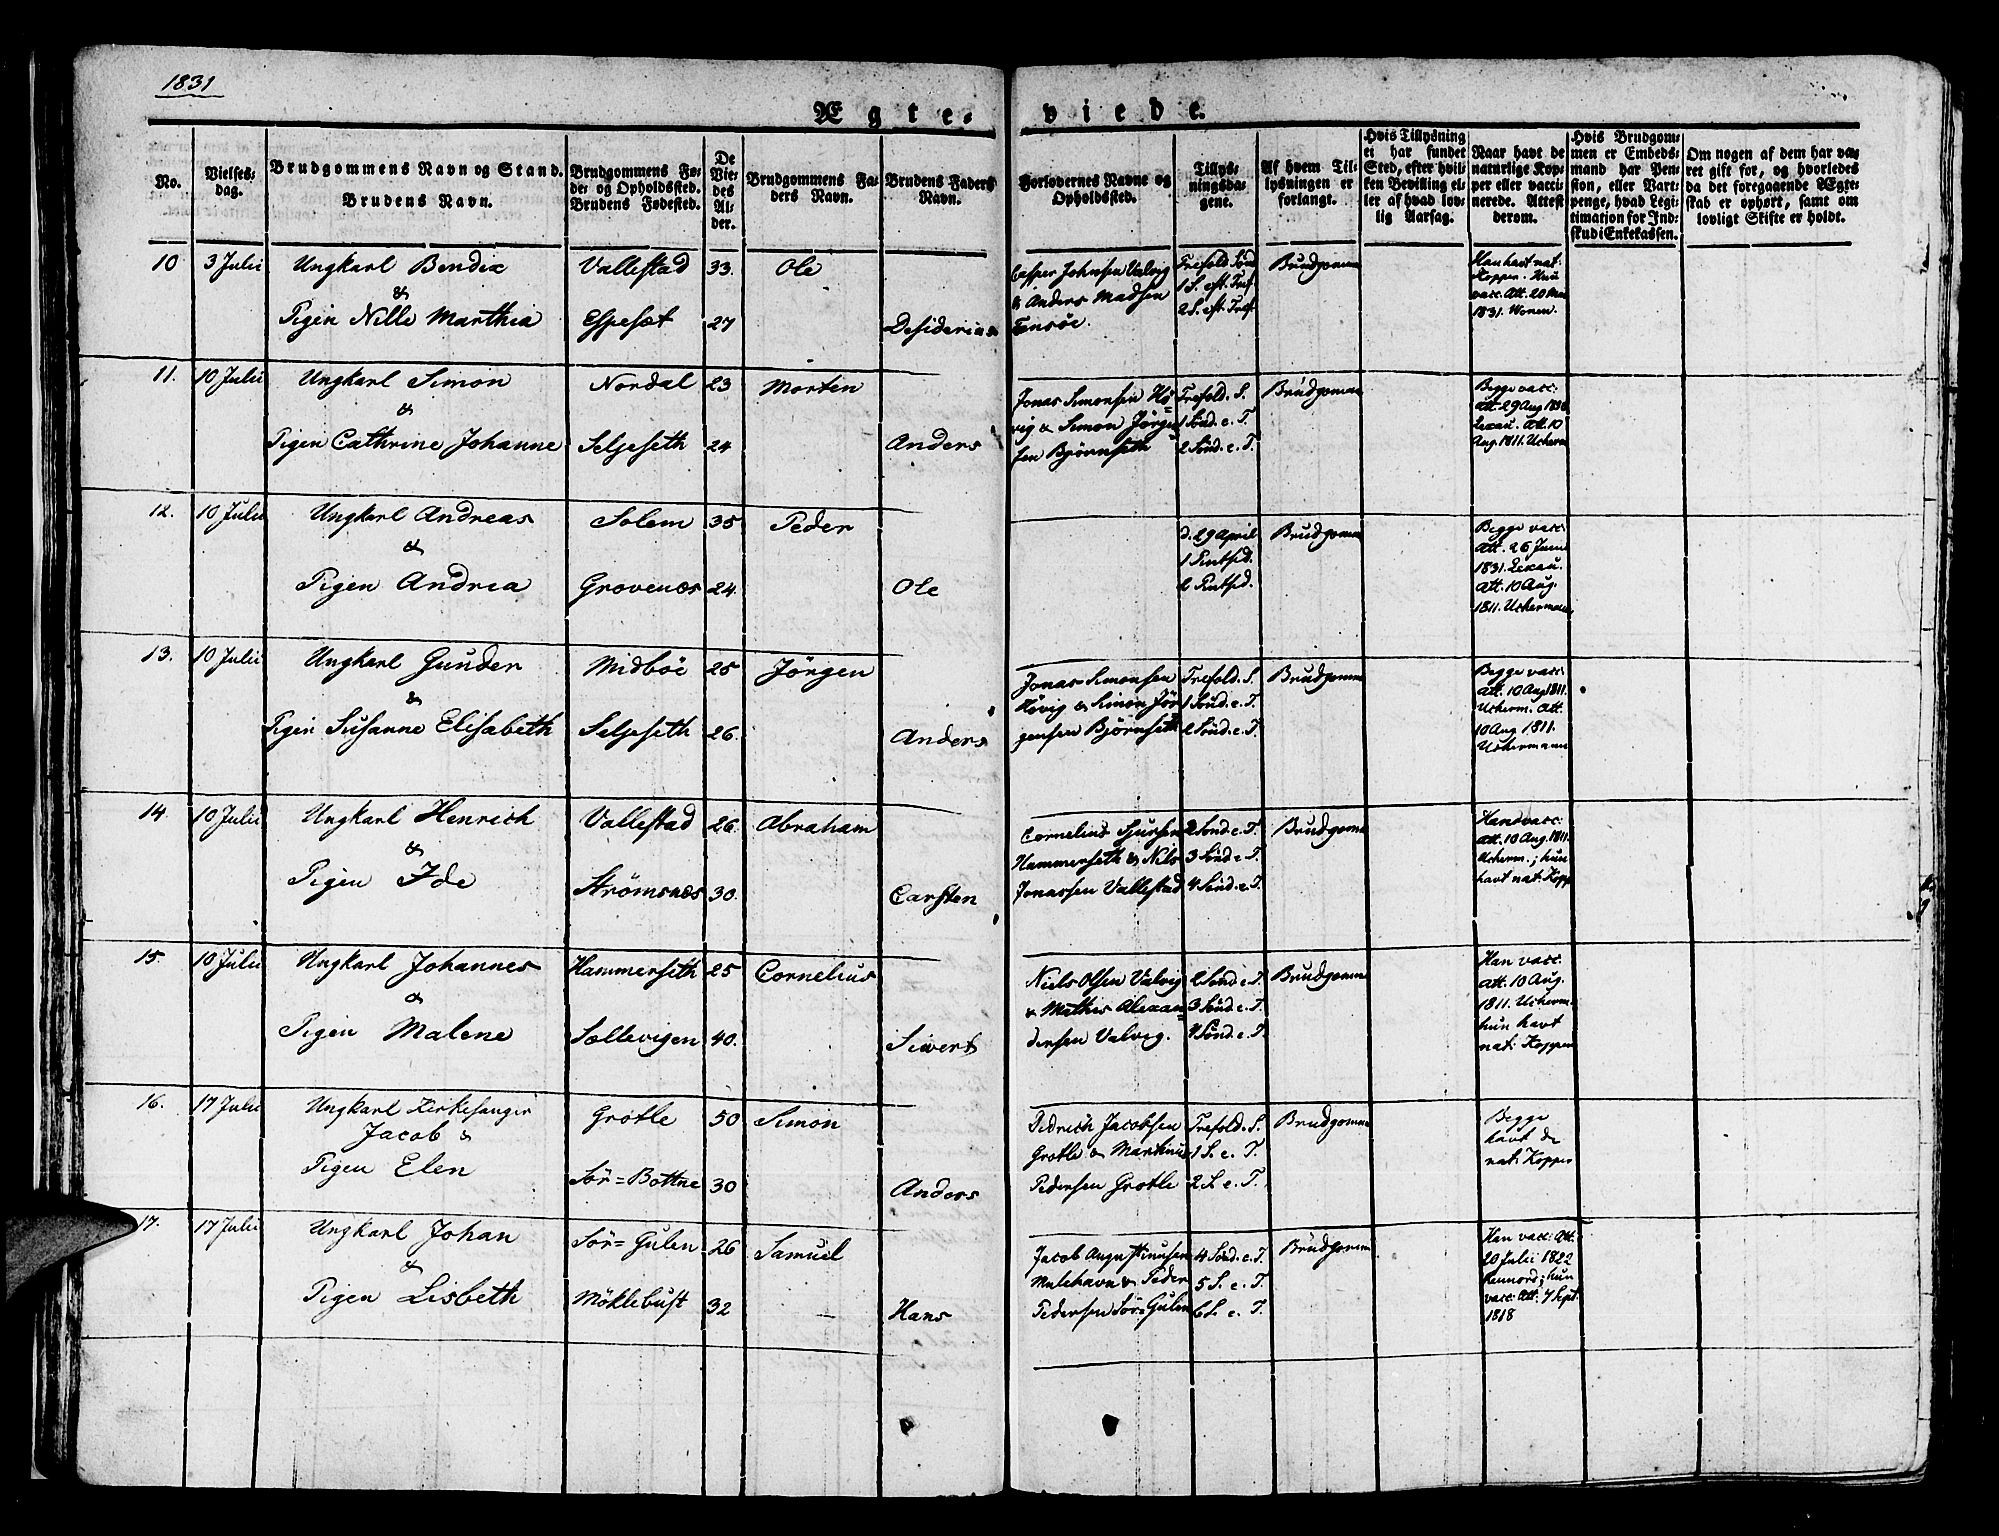 1831
Ægte-
viede.
No.
Vielses-
dag.
Brudgommens Navn og Stand.
Brudens Navn.
Brudgommens Fø-
de- og Opholdssted.
Brudens Fødested.
De
Vie-
des
Al-
der.
Brudgommens Fa-
ders Navn.
Brudens Faders
Navn.
Forlovernes Navne og
Opholdssted.
Tillys-
ningsda-
gene.
Af hvem Til-
lysningen er
forlangt.
Hvis Tillysning
ei har fundet
Sted, efter hvil-
ken Bevilling el-
ler af hvad lov-
lig Aarsag.
Naar havt de
naturlige Kop-
per eller vacci-
nerede. Attest
derom.
Hvis Brudgom-
men er Embeds-
mand har Pen-
sion, eller Vart-
penge, hvad Legi-
timation for Ind-
skud i Enkekassen.
Om nogen af dem har væ-
ret gift for, og hvorledes
da det foregaaende Ægte-
skab er ophørt, samt om
lovligt Skifte er holdt.
10 3 Julii Ungkarl Bendix Vallestad 33. Ole
&
Pigen Nille Marthea Espeset 27 Desiderius
Casper Johnsen Valvig
& Anders Madsen
Tansöe.
Trefold. Sönd
1 S. eft. Tref.
2 S. eft. Tref.
Brudgomme
Han havt nat.
Kopper. Hun
vacc. Att. 20 Mai
1831.
11. 10 Julii Ungkarl Simon Nordal 23 Morten
&
Pigen Cathrine Johanne Seljeseth 24 Anders
Jonas Simonsen Hö-
vig & Simon Jörgen
sen Björnseth
Trefold. S.
1 Sönd. e. T.
2 Sönd. e. T.
Brudgomme
Begge vacc:
Att. 29 Aug
Lexau. Att. 10
Aug. 1811. Ucherm
12. 10 Julii Ungkarl Andreas Solem 35 Peder
&
Pigen Andrea Grovenæs 24. Ole
d. 29 April
Brudgomme
Begge vacc:
Att. 26 Juni
1831. Lexau.
Att. 10 Aug.
1811. Ucherman
13. 10 Julii Ungkarl Gunder Midböe 25 Jörgen
&
Pigen Susanne Elisabeth Seljeseth 26. Anders
Jonas Simonsen
Hövig & Simon Jör
gensen Björnseth
Trefold. S.
1 Sönd. e. T.
2 Sönd. e. T.
Brudgomme
Begge vacc:
Att. 10 Aug 1811.
Ucherm. Att.
10 Aug 1811.
Uchermann
14. 10 Julii Ungkarl Henrich Vallestad 26. Abraham
&
Pigen Ide Strömsnæs 30. Carsten
Cornelius Sjursen
Hammerseth & Nils
Jonassen Vallestad
2 Sönd. e. T.
3 Sönd. e. T.
4 Sönd. e. T.
Brudgomme
Han vacc:
Att. 10 Aug. 1811.
Ucherm.; hun
havt nat: Kopp
15. 10 Julii Ungkarl Johannes Hammerseth 25 Cornelius
&
Pigen Malene Sællevigen 40. Sivert
Niels Olsen Valvig
& Mathis Alexan-
dersen Valvig.
2 Sönd. e. T.
3 Sönd. e. T.
4 Sönd. e. T.
Brudgomme
Han vacc:
Att. 10 Aug.
1811. Ucherm.
hun havt
nat: Kopper
16. 17 Julii Ungkarl Kirkesanger Grotle 50 Simon
Jacob &
Pigen Elen Sör=Bottne 30 Anders
Didrich Jacobsen
Grotle & Martinus
Pedersen Grotle
Trefold. S.
1 S. e. T.
2 S. e. T.
Brudgomme
Begge
havt de
nat: Kopper
17. 17 Julii Ungkarl Johan Sör=Gulen 26 Samuel
&
Pigen Lisbeth Möklebust 32 Hans
Jacob Augustinusen
Mulehavn & Peder
Pedersen Sör-Gulen
4 Sönd. e. T.
5 S. e. T.
6 S. e. T.
Brudgomme
Han vacc: Att.
20 Julii 1822
hun
vacc: Att. 7 Sept.
1818